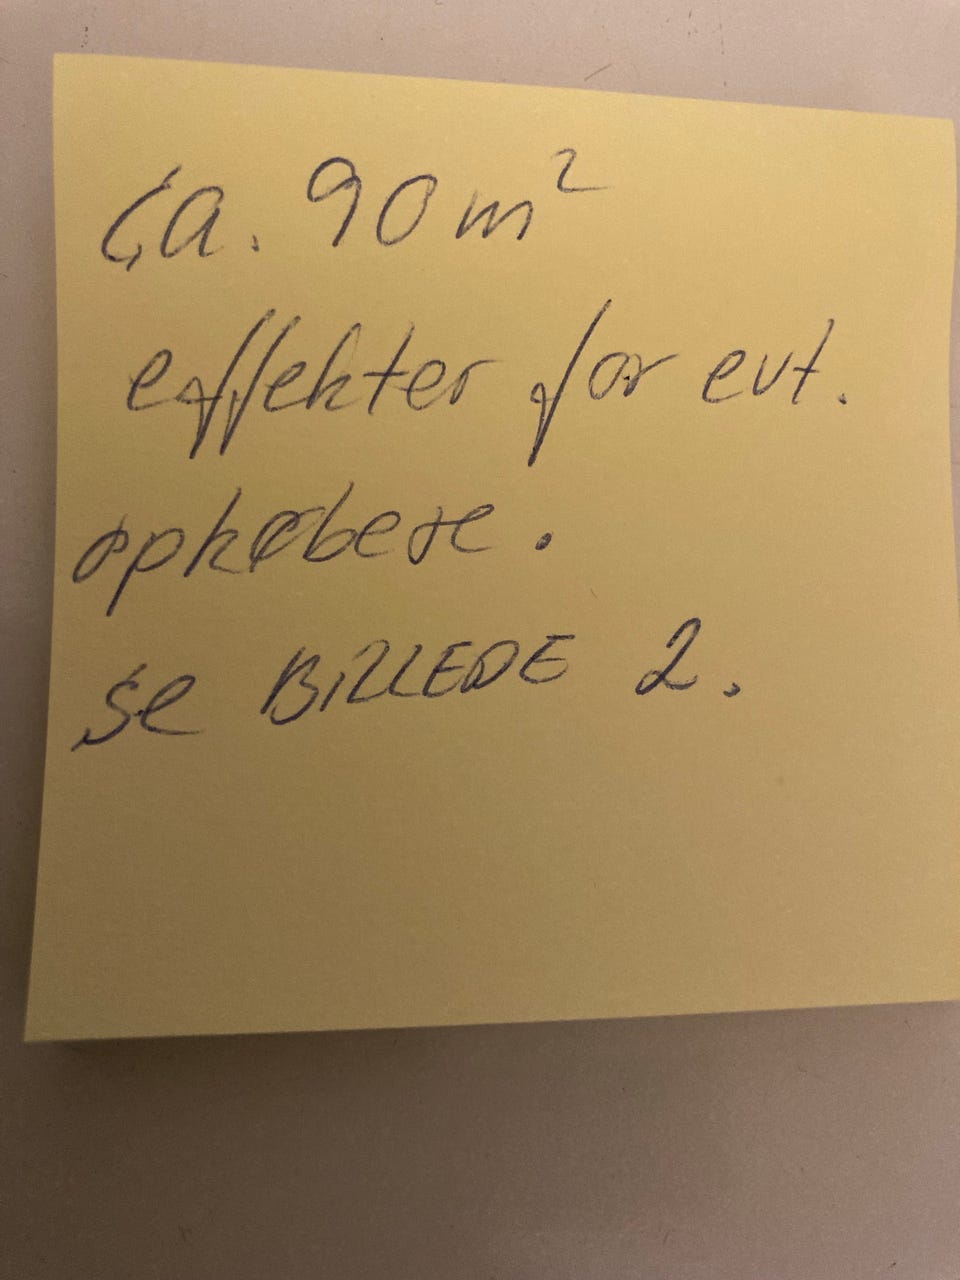 ca. 90 m²
effekter for evt.
opkøbere.
se BILLEDE 2.